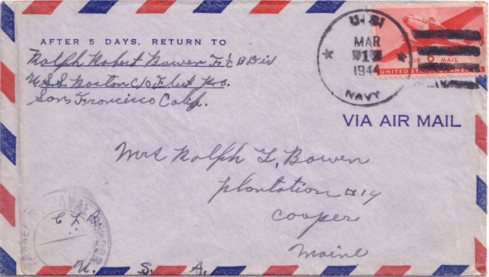 AFTER 5 DAYS, RETURN TO
Ralph Robert Bowen F1c B Div
U.S.S. Boston c/o Fleet P.O.
San Francisco Calif.
U.S.
MAR
1944
NAVY
AIR MAIL
UNITED STATES
VIA AIR MAIL
Mrs Ralph L. Bowen
plantation #14
Cooper
Maine
NAVAL CENSOR
U. S. A.